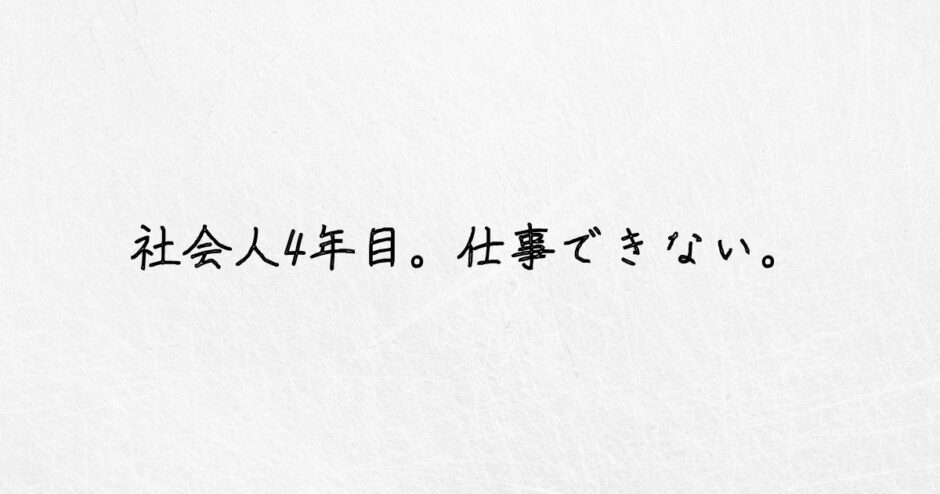 社会人4年目。仕事できない。